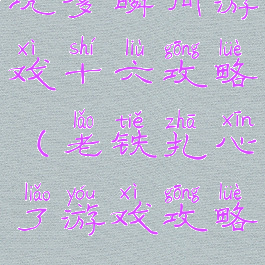 游
xì shí liù gōng lüè
戏十六攻略
lǎo tiě zhā xīn
(老铁扎心
liǎo yóu xì gōng lüè
了游戏攻略